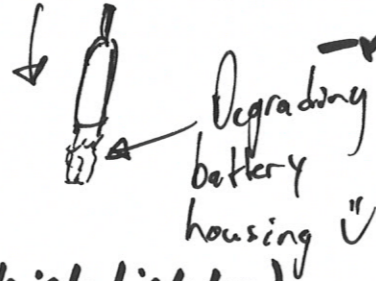 Degrading
battery
housing ü